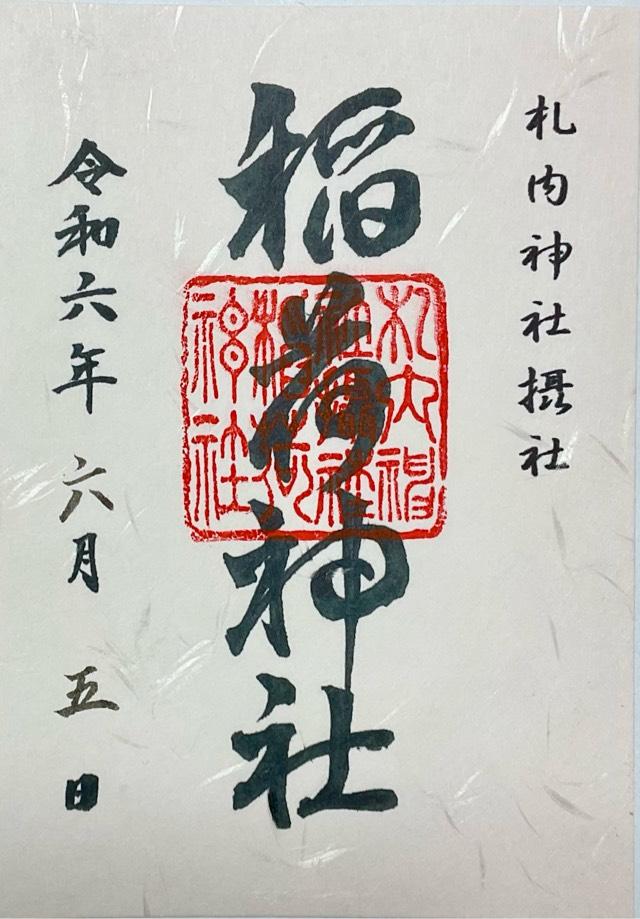 札内神社摂社
稲荷神社
札内神
神社
令和六年 六月 五日